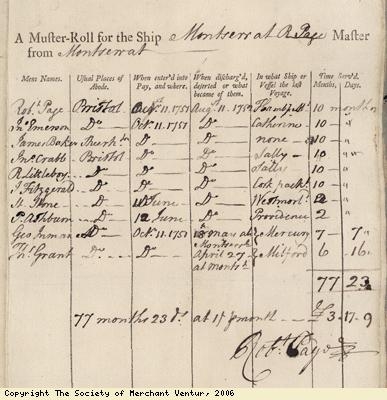 A Muster-Roll for the Ship Montserrat R Page Master
from Montserrat
Mens Names. Usual Places of Abode. When enter'd into Pay, and where. When discharg'd, deserted or what became of them. In what Ship or Vessel the last Voyage. Time Serv'd. Months. Days.
Robt. Page Bristol Octr. 11. 1751 Augt. 11. 1752 10 months
Jn Emerson Do Octr. 11. 1751 Do Catherine 10 "
James Baker Do Do none 10 "
Jno. Crabb Bristol Do Do Sally 10 "
Do Do Do Sally 10 "
J Fitzgerald Do Do Do Cork packt. 10 "
Do June Do 2 "
Do 12 June Do Providence 2 "
Geo Do Octr. 11. 1751 18 may at Montserrt. Mercury 7 7
Ths. Grant Do Do April 27 at Montst. Milford 6 16
77 23
77 months 23 ds. at 1s p month £3-17-9
Robt. Page
Copyright The Society of Merchant Ventur, 2006